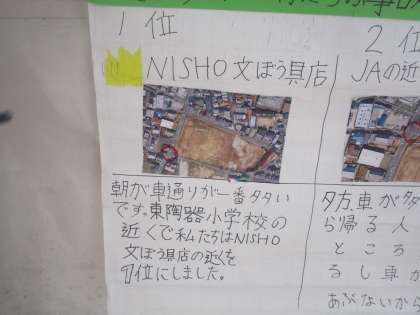 1位
NISHO文ぼう具店
朝が車通りが一番タタい
です。東陶器小学校の
近くで私たちはNISHO
文ぼう具店の近くを
1位にしました。
2位
JAの近
夕方、車が多
ら帰る人
ところ
るし車が
あぶないから